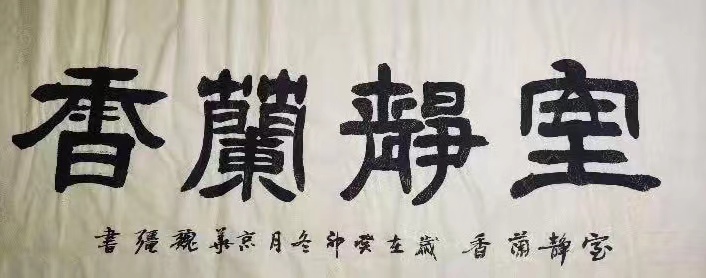 室靜蘭香
室靜蘭香 歲在癸卯冬月京華魏書